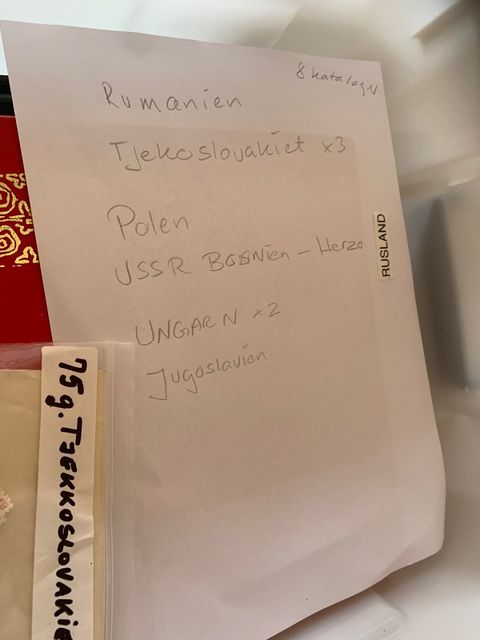 8 kataloger
Rumanien
Tjekoslovakiet x3
Polen
USSR Bosnien - Herzo
RUSLAND
UNGARN x2
Jugoslavien
75g. TJEKKOSLOVAKIE